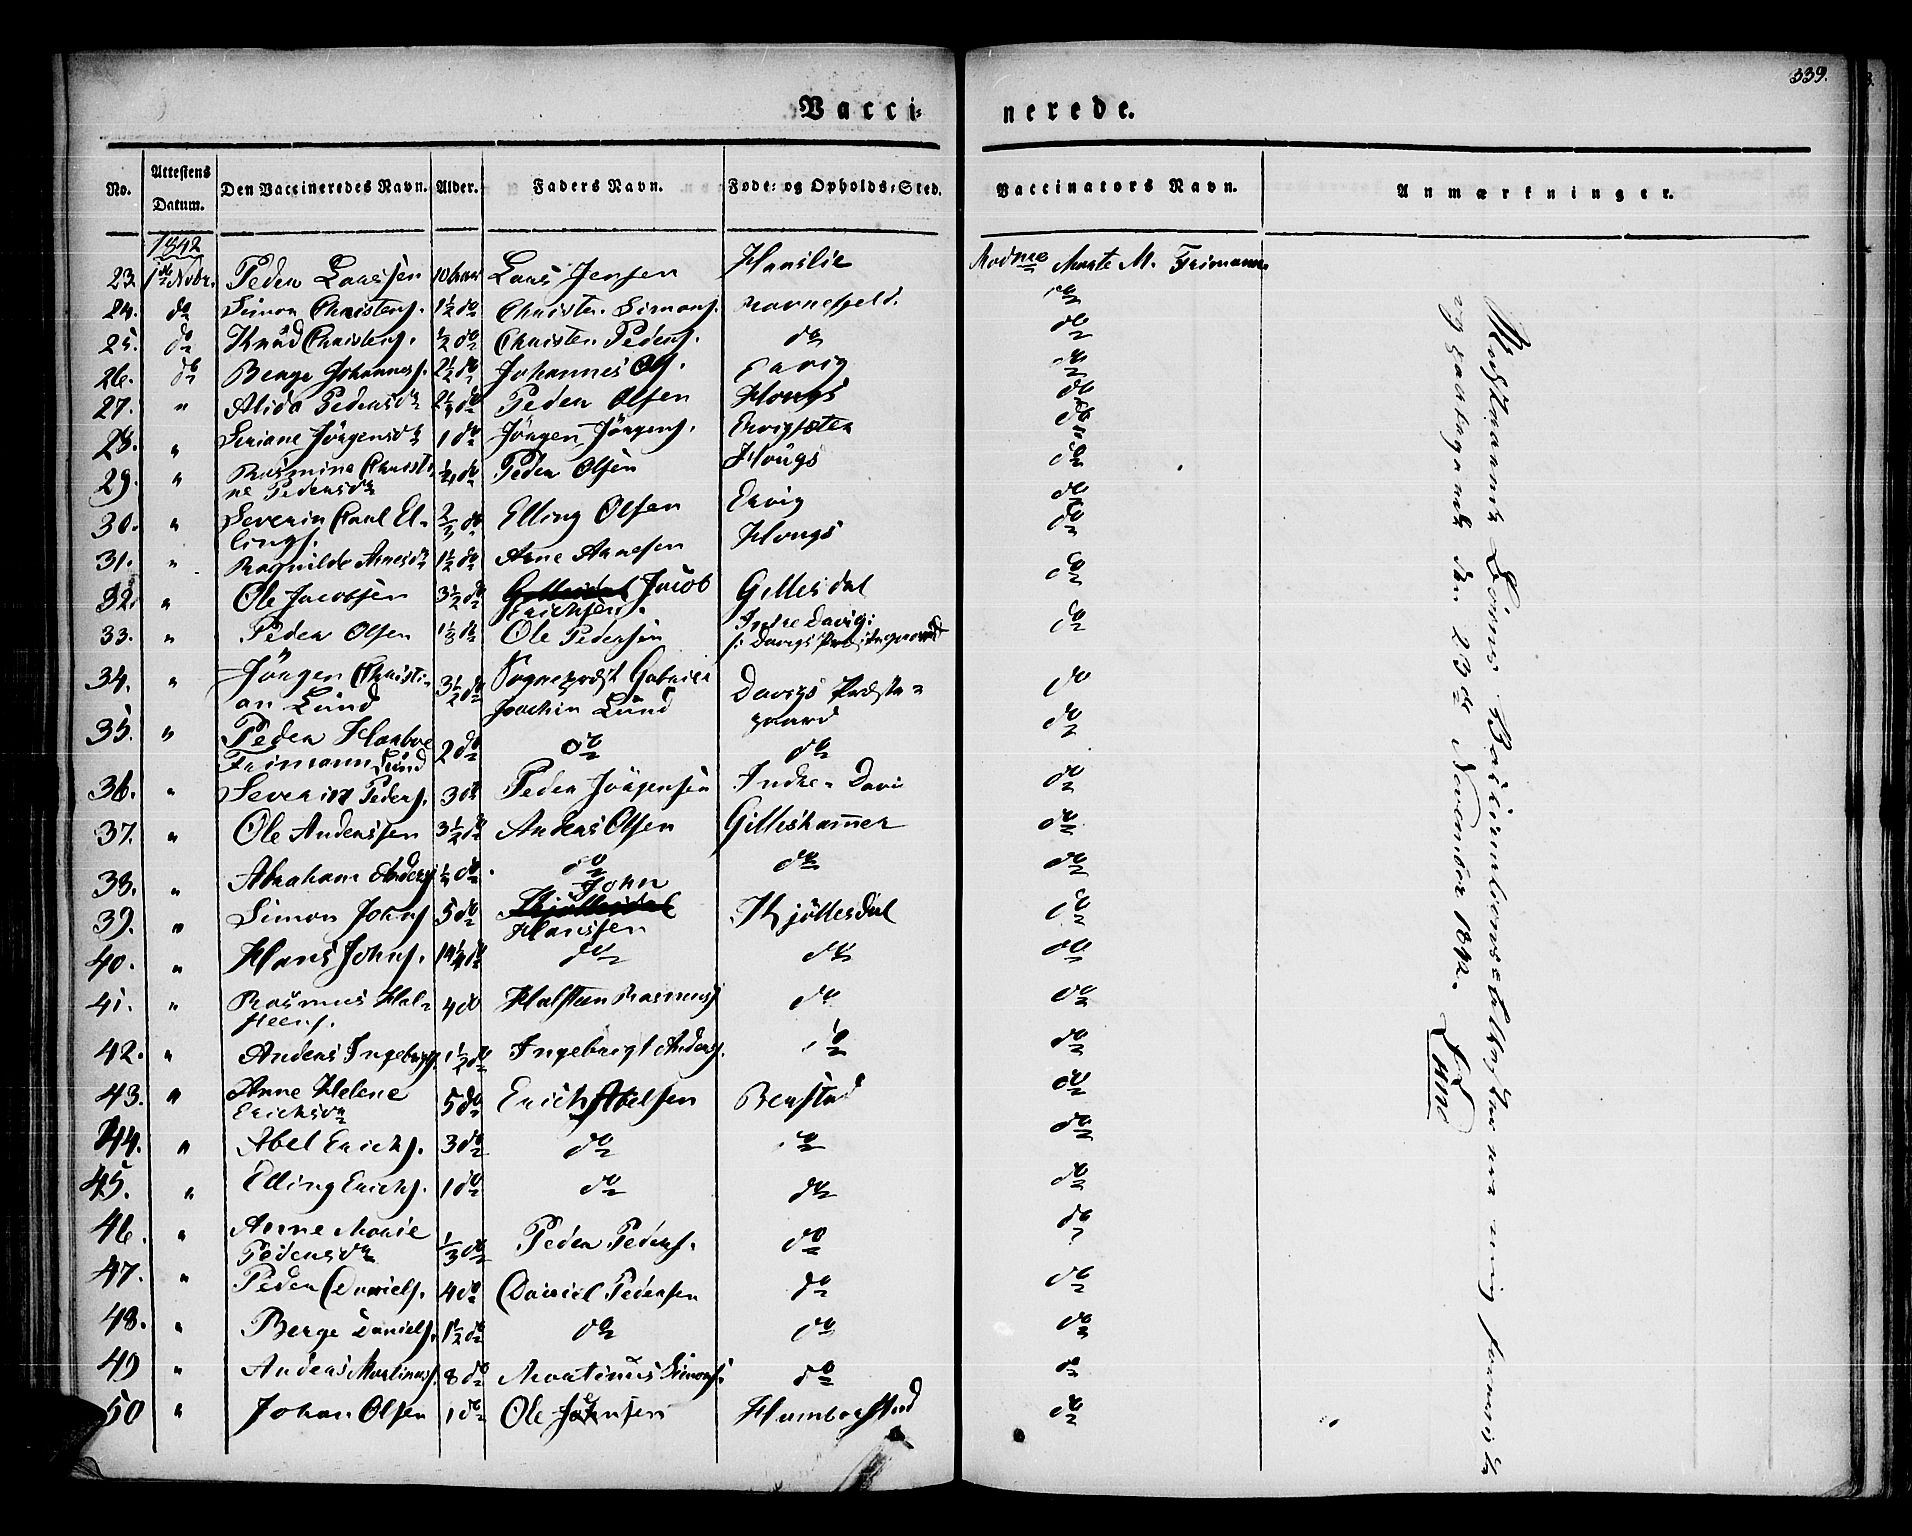 339.
Vacci-nerede.
No. Attestens Datum. Den Vaccineredes Navn. Alder. Faders Navn. Føde- og Opholds-Sted. Vaccinators Navn. Anmærkninger.
1842
23. 1ste Novbr. Peder Larssen 10 Lars Jensen Hanslie Madme Marte M. Friman
24. do Simon Christens. 1½ do Christen Simons. Navnefjeld. do
25. do Knud Christens. ½ do Christen Peders. do do
26. do Berge Johannes. 2½ do Johannes Ols. Ervig do
27. " Alida Pedersdr Peder Olsen Hougs do
28. " Jørgensdr 1 do Jørgen Jørgens. Ervigsæter do
29. " Rasmine Christine Pedersdr do Peder Olsen Hougs do
30. " Severin Carl Ellings. ⅔ do Elling Olsen Ervig do
31. " Ragnilde Arnesdr 1½ do Arne Arnesen Hougs do
32. " Ole Jacobsen 3½ do Jacob Erichsen. Gillesdal do
33. " Peder Olsen 1⅓ do Ole Pedersen Indre Davig: do
34. " Jørgen Christian Lund 3½ do Sognepræst Gabriel Joachim Lund Davigs Præstegaard do
35. " Peder Harboe Frimann Lund 2 do do do do
36. " Severin Peders. 3 do Peder Jørgensen Indre-Davi do
37. " Ole Anderssen 3½ do Anders Olsen Gilleshammer do
38. " Abraham Anders. do do do do
39. " Simon Johns. 5 do John Hanssen Kjøllesdal do
40. " Hans Johns. do do do
41. " Rasmus Halsteens. 4 do Halsteen Rasmuss. do do
42. " Anders Ingebrigs. 1½ do Ingebrigt Anders. do do
43. " Anne Helene Erichsdr 5 do Erich Abelsen Berstad do
44. " Abel Erichs. 3 do do do do
45. " Elling Erichs. 1 do do do do
46. " Anne Marie Pedersdr ⅓ do Peder Peders. do do
47. " Peder Daniels. 4 do Daniel Pedersen do do
48. " Berge Daniels. 1½ do do do do
49 " Anders Martinus. 8 do Martinus Simons. do do
50 " Johan Olsen 1 do Ole Jensen Humborstad do
den 23de November 1842. Lund